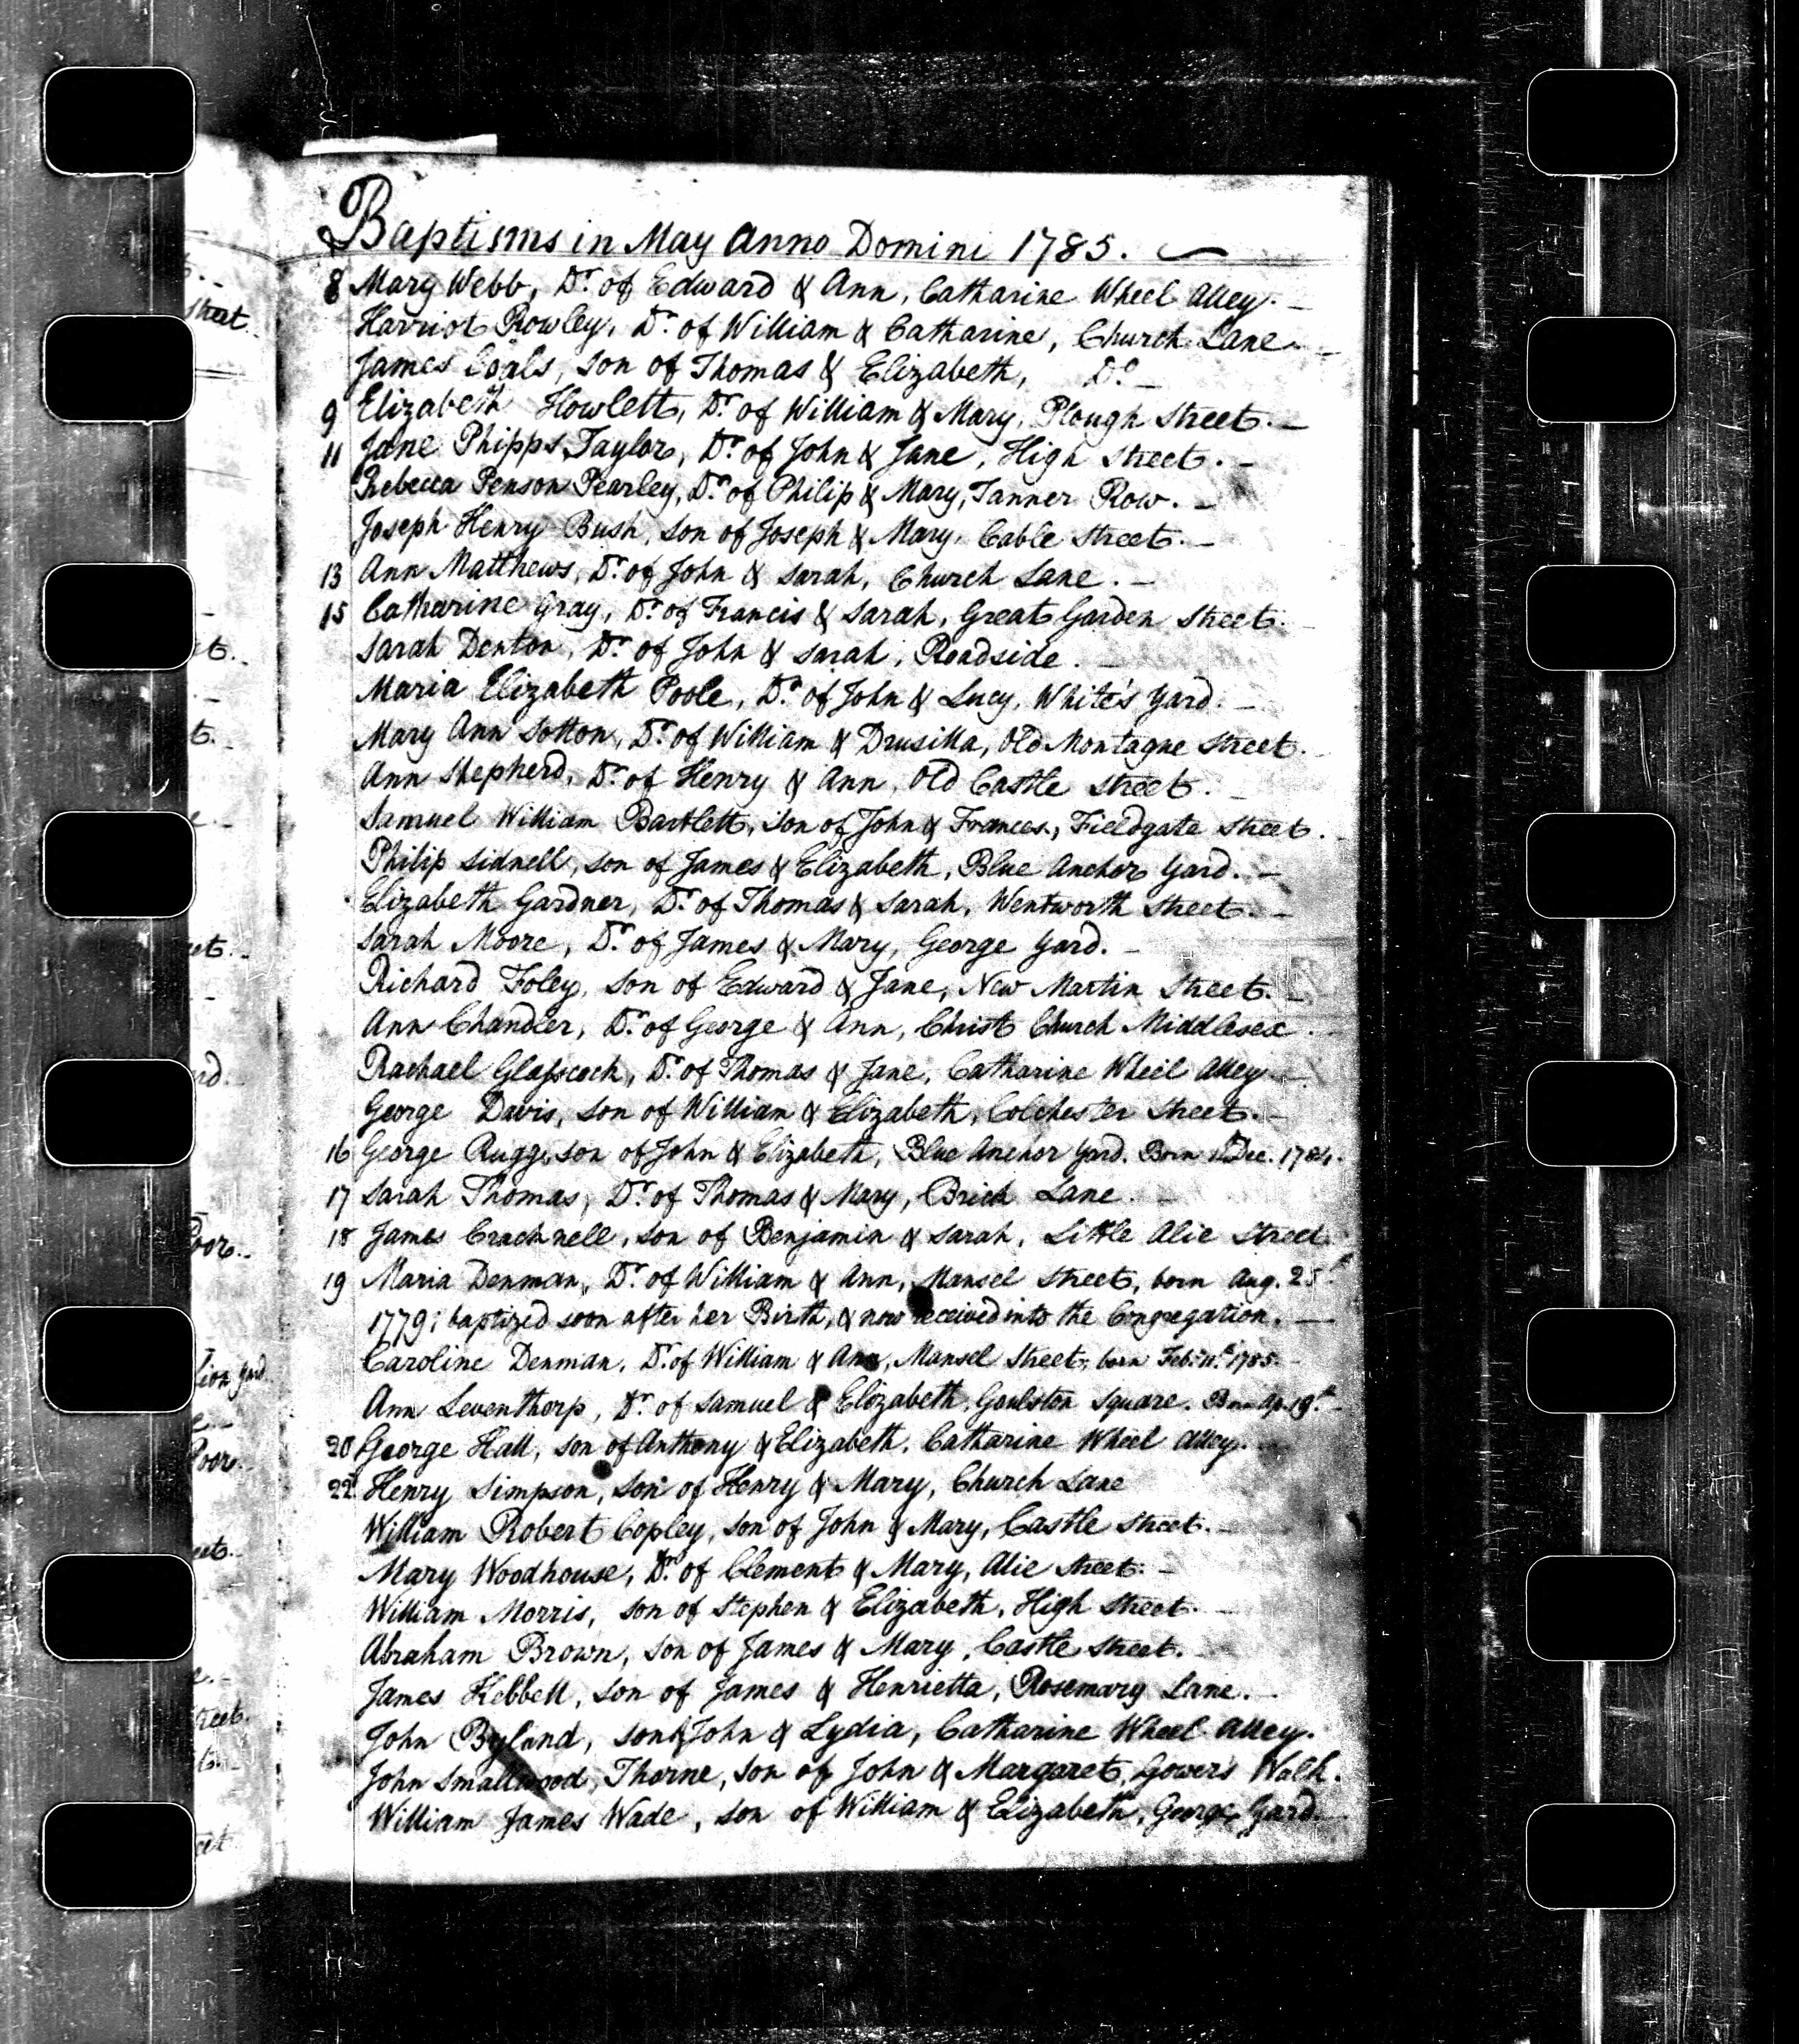 Baptisms in May Anno Domini 1785.
8 Mary Webb, Dr. of Edward & Ann, Catharine Wheel Alley.
Harriot Rowley, Dr. of William & Catharine, Church Lane
James Coals, son of Thomas & Elizabeth, Do.
9 Elizabeth Howlett, Dr. of William & Mary, Plough Street.
11 Jane Phipps Taylor, Dr. of John & Jane, High Street.
Rebecca Penson Pearley, Dr. of Philip & Mary, Tanner Row.
Joseph Henry Bush, son of Joseph & Mary, Cable Street.
13 Ann Matthews, Dr. of John & Sarah, Church Lane.
15 Catharine Gray, Dr. of Francis & Sarah, Great Garden Street.
Sarah Denton, Dr. of John & Sarah, Roadside.
Maria Elizabeth Poole, Dr. of John & Lucy, White's Yard.
Mary Ann Sotton, Dr. of William & Drusilla, Old Montague Street.
Ann Shepherd, Dr. of Henry & Ann, Old Castle Street.
Samuel William Bartlett, son of John & Frances, Fieldgate Street.
Philip Sidnell, son of James & Elizabeth, Blue Anchor Yard.
Elizabeth Gardner, Dr. of Thomas & Sarah, Wentworth Street.
Sarah Moore, Dr. of James & Mary, George Yard.
Richard Foley, son of Edward & Jane, New Martin Street.
Ann Chandler, Dr. of George & Ann, Christ Church Middlesex.
Rachael Glasscock, Dr. of Thomas & Jane, Catharine Wheel Alley
George Davis, son of William & Elizabeth, Colchester Street.
16 George Rugg, son of John & Elizabeth, Blue Anchor Yard. Born Dec. 1784.
17 Sarah Thomas, Dr. of Thomas & Mary, Brick Lane.
18 James Cracknell, son of Benjamin & Sarah, Little Alie Street.
19 Maria Denman, Dr. of William & Ann, Mansel Street, born Aug. 25th
1779; baptized soon after her Birth, & now received into the Congregation.
Caroline Denman, Dr. of William & Ann, Mansel Street, born Feb. 11th 1785.
Ann Leventhorp, Dr. of Samuel & Elizabeth, Goulston Square. Born Ap. 19th
20 George Hall, son of Anthony & Elizabeth, Catharine Wheel Alley.
22 Henry Simpson, son of Henry & Mary, Church Lane
William Robert Copley, son of John & Mary, Castle Street.
Mary Woodhouse, Dr. of Clement & Mary, Alie Street.
William Morris, son of Stephen & Elizabeth, High Street.
Abraham Brown, son of James & Mary, Castle Street.
James Kebbell, son of James & Henrietta, Rosemary Lane.
John Byland, son of John & Lydia, Catharine Wheel Alley.
John Smallwood, Thorne, son of John & Margaret, Gower's Walk.
William James Wade, son of William & Elizabeth, George Yard.